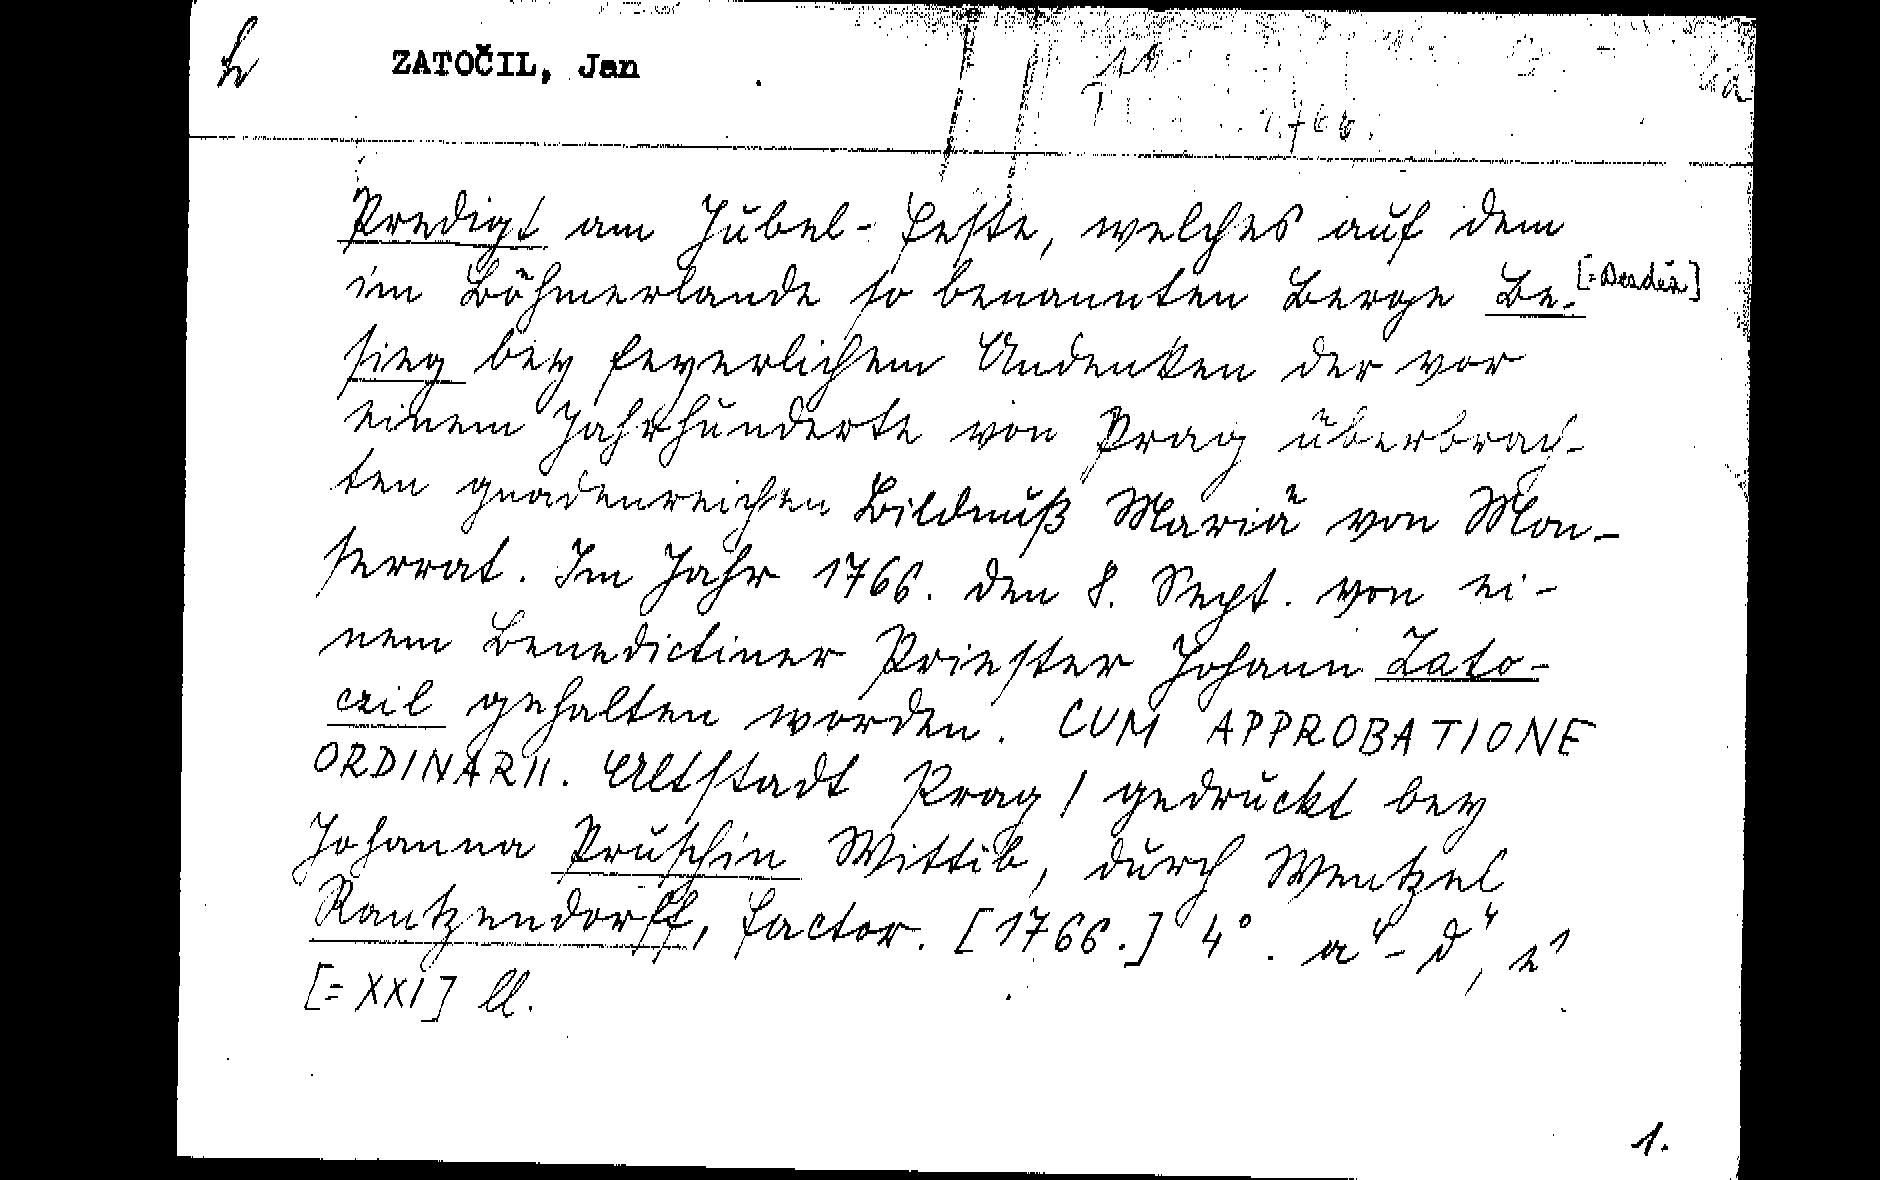 ZATOČIL, Jan
1766.
Predigt am Jubel-Feste, welches auf dem
im Böhmerlande so benannten Berge Be- [=Desdín]
sieg bey feyerlichem Andenken der vor
einem Jahrhunderte von Prag überbrach-
ten gnadenreichen Bildnuß Mariä von Mon-
serrat. Im Jahr 1766. den 8. Sept. von ei-
nem Benedictiner Priester Johann Zato-
czil gehalten worden. CUM APPROBATIONE
ORDINARII. Altstadt Prag / gedruckt bey
Johanna Pruschin Wittib, durch Wentzel
Rantzendorff, Factor. [1766.] 4°. a⁴-d⁴, e¹
[=XXI] ll.
1.